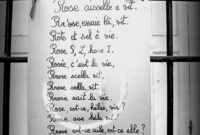 Rose aisselle a vit.
Rr'ose, essaie là, vit.
Rôts et sel à vie.
Rose S, L, have I.
Rosée, c'est la vie,
Rrose scella vit,
Rrose sella, vit,
Rrose sait la vie.
Rose est-ce, hélas, vie?
Rrose aise héla vit,
Rrose est-ce aile, est-ce elle?